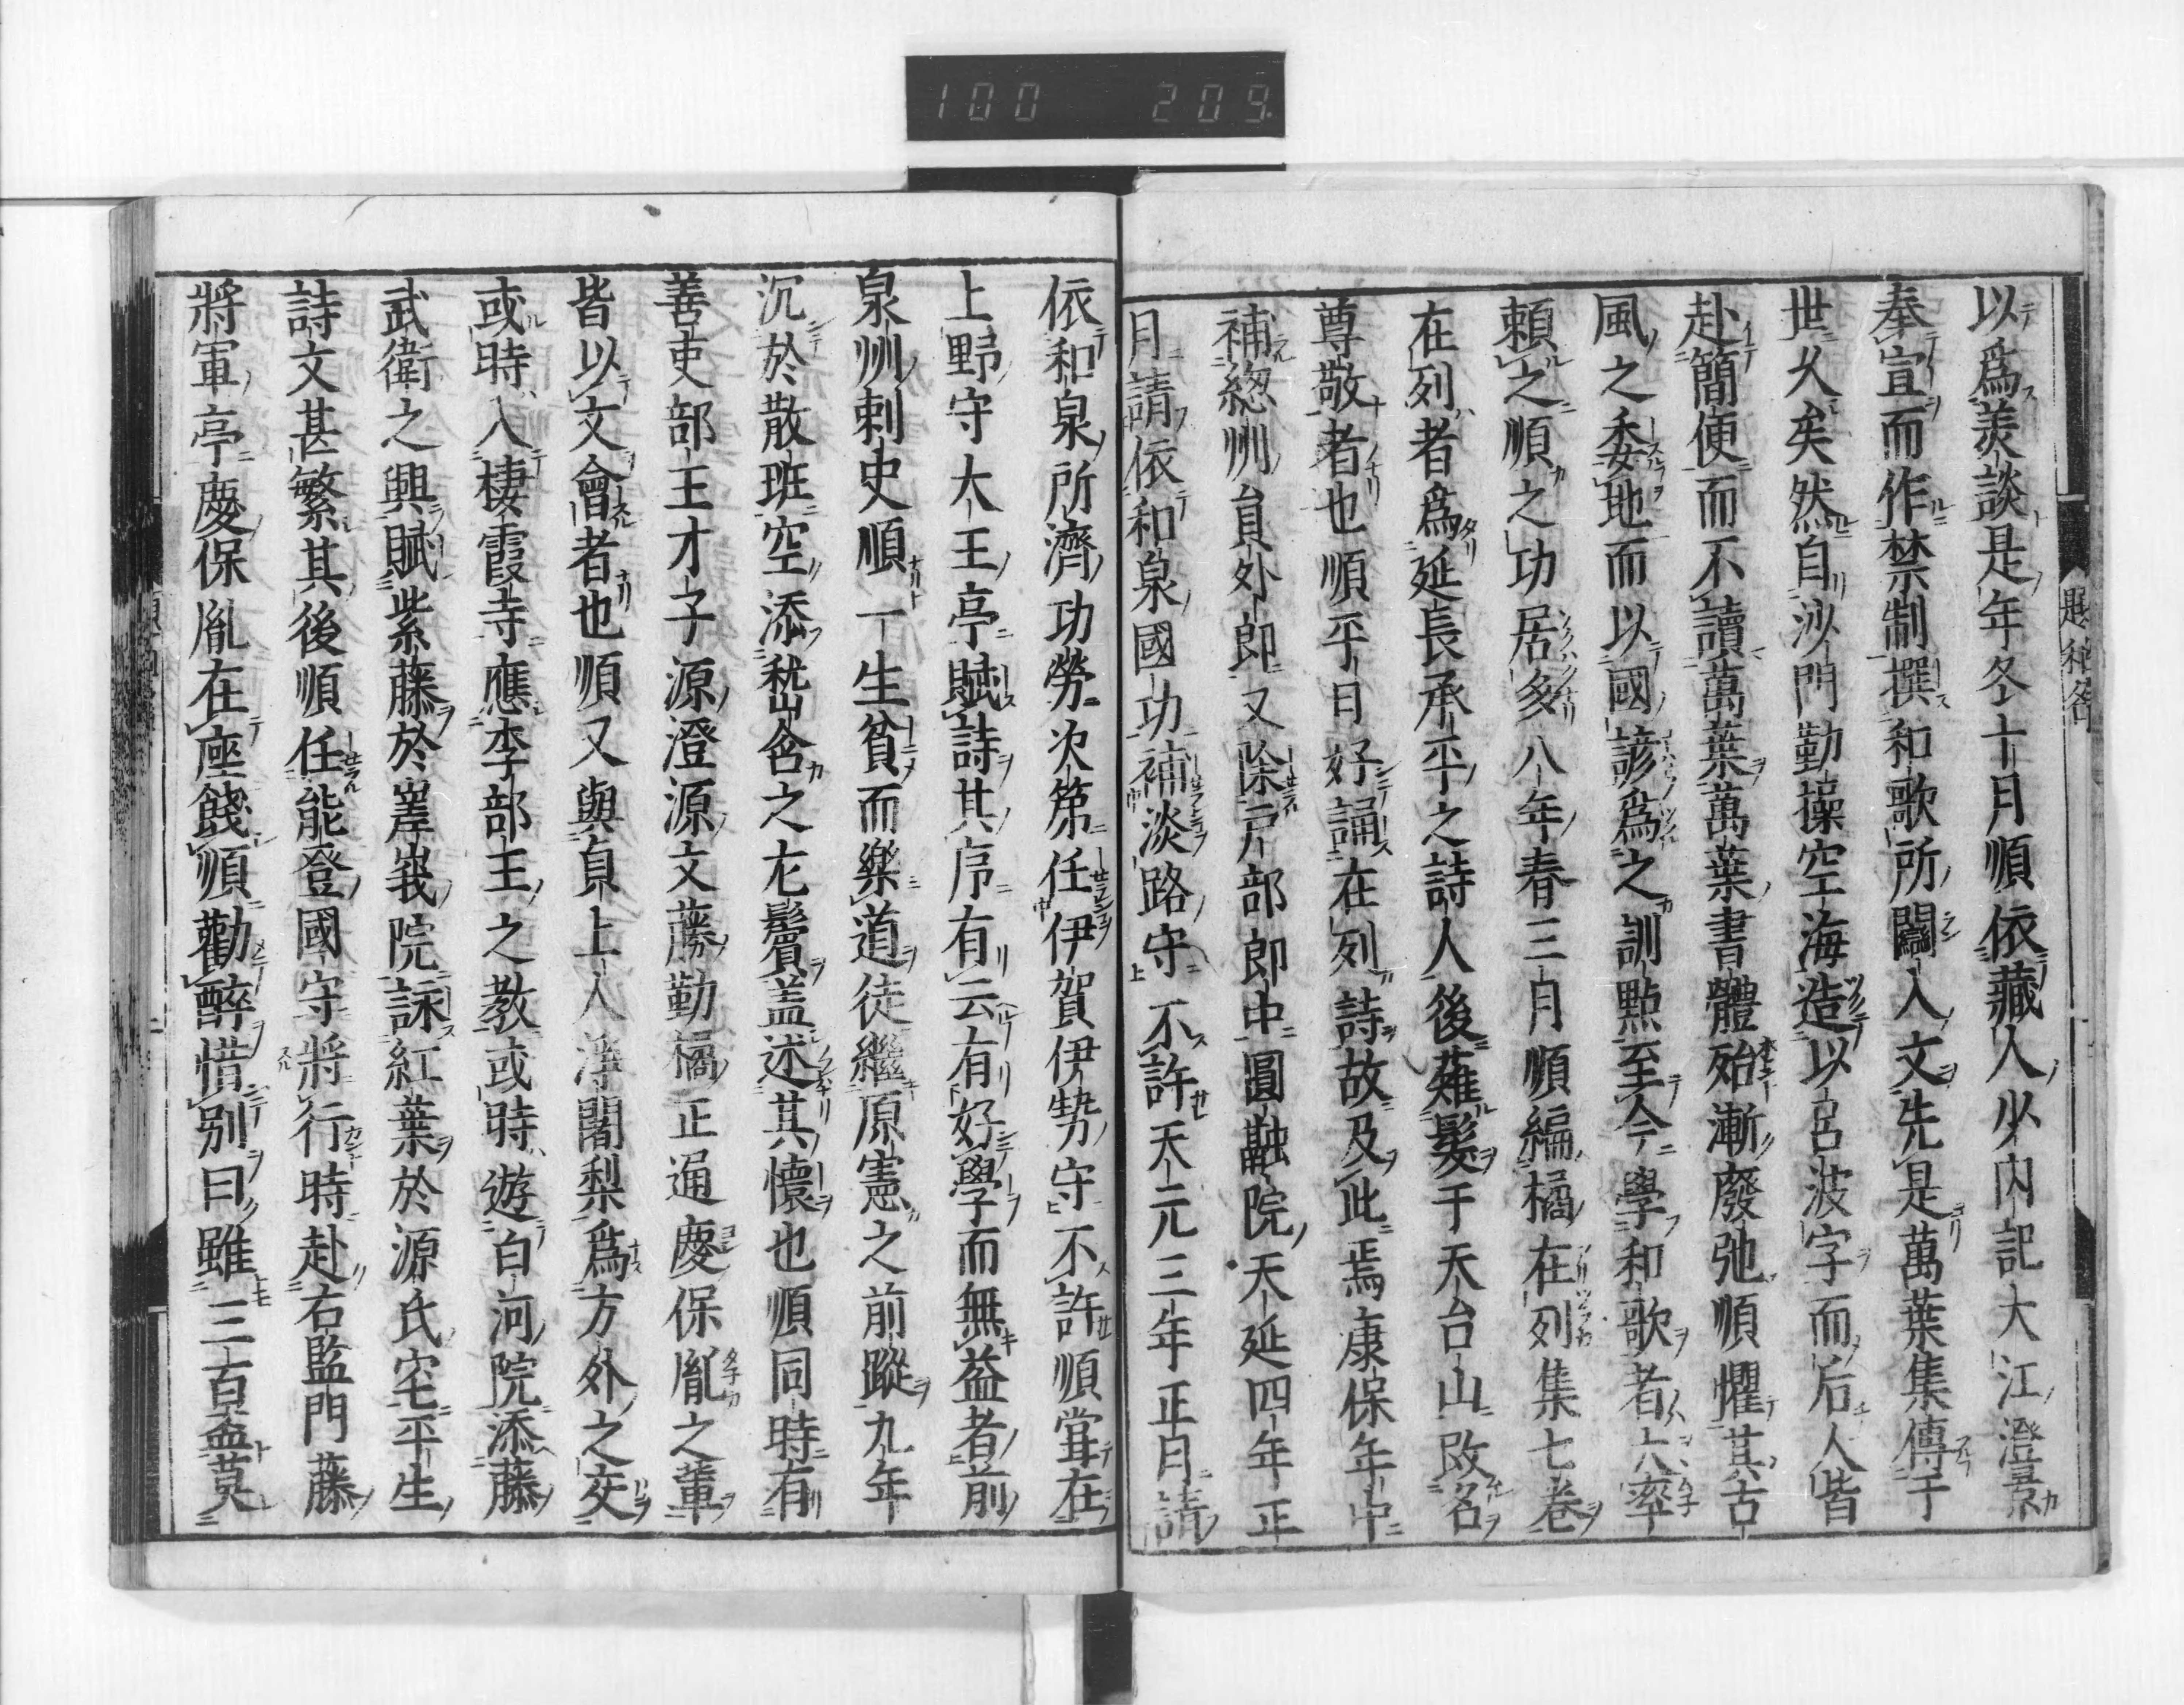 100 209
以爲美談是年冬十月順依藏人少内記大江澄景
奉宣而作禁制撰和歌所闌入文先是萬葉集傳于
世久矣然自沙門勤操空海造以呂波字而后人皆
赴簡便而不讀萬葉萬葉書體殆漸廢弛順懼其古
風之委地而以國諺爲之訓點至今學和歌者六率
頼之順之功居多八年春三月順編橘在列集七卷
在列者爲延長承平之詩人後薙髮于天台山改名
尊敬者也順平日好誦在列詩故及此焉康保年中
補總州員外郎又除戸部郎中圓融院天延四年正
月請依和泉國功補淡路守不許天元三年正月請
依和泉所濟功勞次第任伊賀伊勢守不許順甞在
上野守大王亭賦詩其序有云有好學而無益者前
泉州刺史順一生貧而樂道徒繼原憲之前蹤九年
沉於散班空添嵆含之尨鬢盖述其懷也順同時有
善吏部王才子源澄源文藤勤橘正通慶保胤之輩
皆以文會者也順又與貞上人淨闍梨爲方外之交
或時入棲霞寺應李部王之教或時遊白河院添藤
武衛之興賦紫藤於嵳峩院詠紅葉於源氏宅平生
詩文甚繁其後順任能登國守將行時赴右監門藤
將軍亭慶保胤在座餞順勸醉惜別曰雖三百盃莫